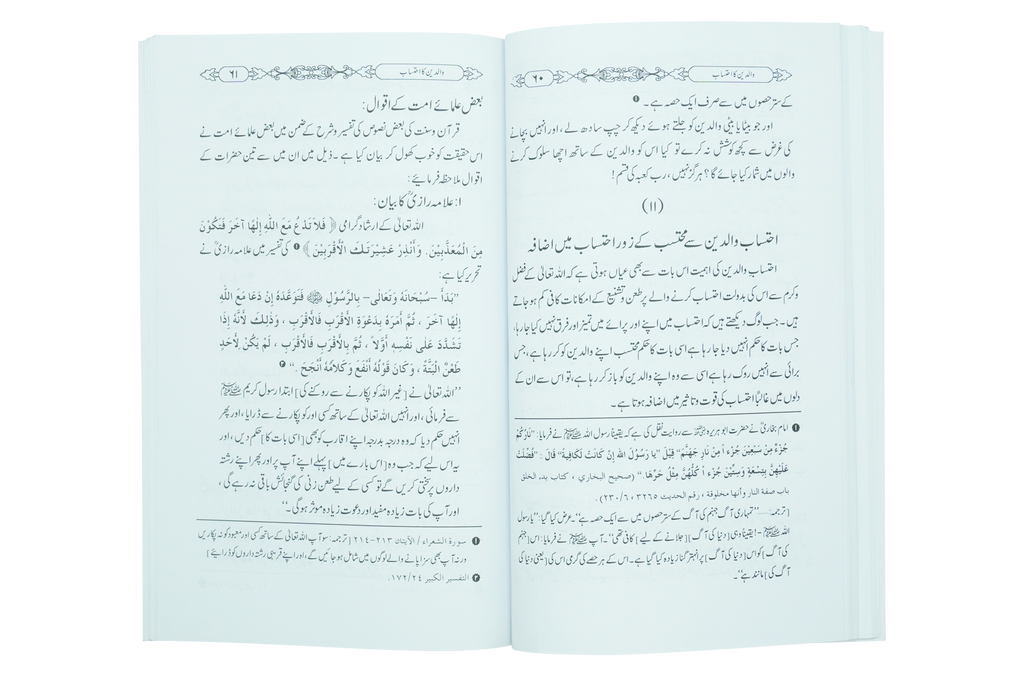 والدین کا احتساب
۶۰
کے ستر حصوں میں سے صرف ایک حصہ ہے۔ ❶
اور جو بیٹا یا بیٹی والدین کو جلتے ہوئے دیکھ کر چپ سادھ لے، اور انہیں بچانے
کی غرض سے کچھ کوشش نہ کرے تو کیا اس کو والدین کے ساتھ اچھا سلوک کرنے
والوں میں شمار کیا جائے گا؟ ہرگز نہیں، رب کعبہ کی قسم!
(۱۱)
احتساب والدین سے محتسب کے زور احتساب میں اضافہ
احتساب والدین کی اہمیت اس بات سے بھی عیاں ہوتی ہے کہ اللہ تعالیٰ کے فضل
وکرم سے اس کی بدولت احتساب کرنے والے پر طعن و تشنیع کے امکانات کافی کم ہو جاتے
ہیں۔ جب لوگ دیکھتے ہیں کہ احتساب میں اپنے اور پرائے میں تمیز اور فرق نہیں کیا جا رہا،
جس بات کا حکم انہیں دیا جا رہا ہے اسی بات کا حکم محتسب اپنے والدین کو کر رہا ہے، جس
برائی سے انہیں روک رہا ہے اسی سے وہ اپنے والدین کو باز کر رہا ہے، تو اس سے ان کے
دلوں میں غالباً احتساب کی قوت و تاثیر میں اضافہ ہوتا ہے۔
❶ امام بخاریؒ نے حضرت ابو ہریرہ ؓ سے روایت نقل کی ہے کہ یقیناً رسول اللہ ﷺ نے فرمایا: "نَارُكُمْ
جُزْءٌ مِنْ سَبْعِينَ جُزْءاً مِنْ نَارِ جَهَنَّمَ" قِيْلَ "يا رَسُوْلَ اللهِ إِنْ كَانَتْ لَكَافِيَةً" قَالَ : "فُضِّلَتْ
عَلَيْهِنَّ بِتِسْعَةٍ وَسِتِّيْنَ جُزْءاً كُلُّهُنَّ مِثْلُ حَرِّهَا " (صحيح البخاري ، كتاب بدء الخلق
باب صفة النار وأنها مخلوقة ، رقم الحديث ۳۲۶۵ ، ۲۳۰/۶).
[ترجمہ: ۔۔۔ "تمہاری آگ جہنم کی آگ کے ستر حصوں میں سے ایک حصہ ہے"۔ عرض کیا گیا: "یا رسول
اللہ ﷺ ۔ یقیناً وہی [دنیا کی آگ] [جلانے کے لیے] کافی تھی"۔ آپ ﷺ نے فرمایا: اس [جہنم
کی آگ] کو اس [دنیا کی آگ] پر انہتر گنا زیادہ کیا گیا ہے۔ اس کے ہر حصے کی گرمی اس کی [یعنی دنیا کی
آگ کی] مانند ہے"۔
والدین کا احتساب
۶۱
بعض علمائے امت کے اقوال:
قرآن وسنت کی بعض نصوص کی تفسیر و شرح کے ضمن میں بعض علمائے امت نے
اس حقیقت کو خوب کھول کر بیان کیا ہے۔ ذیل میں ان میں سے تین حضرات کے
اقوال ملاحظہ فرمائیے:
۱: علامہ رازیؒ کا بیان:
اللہ تعالیٰ کے ارشاد گرامی ﴿ فَلاَ تَدْعُ مَعَ اللهِ إِلٰهًا آخَرَ فَتَكُوْنَ
مِنَ الْمُعَذَّبِيْنَ. وَأَنْذِرْ عَشِيْرَتَكَ الْأَقْرَبِيْنَ ﴾ ❶ کی تفسیر میں علامہ رازیؒ نے
تحریر کیا ہے:
"بَدَأَ -سُبْحَانَهُ وَتَعَالَى- بِالرَّسُوْلِ ﷺ فَتَوَعَّدَهُ إِنْ دَعَا مَعَ اللهِ
إِلٰهًا آخَرَ ، ثُمَّ أَمَرَهُ بِدَعْوَةِ الْأَقْرَبِ فَالْأَقْرَبِ ، وَذٰلِكَ لِأَنَّهُ إِذَا
تَشَدَّدَ عَلَى نَفْسِهِ أَوَّلاً ، ثُمَّ بِالْأَقْرَبِ فَالْأَقْرَبِ ، لَمْ يَكُنْ لِأَحَدٍ
طَعْنٌ الْبَتَّةَ ، وَكَانَ قَوْلُهُ أَنْفَعَ وَكَلَامُهُ أَنْجَحَ ." ❷
"اللہ تعالیٰ نے [غیر اللہ کو پکارنے سے روکنے کی] ابتدا رسول کریم ﷺ
سے فرمائی، اور انہیں اللہ تعالیٰ کے ساتھ کسی اور کو پکارنے سے ڈرایا، اور پھر
انہیں حکم دیا کہ وہ درجہ بدرجہ اپنے اقارب کو بھی [اسی بات کا] حکم دیں، اور
یہ اس لیے کہ جب وہ [اس بارے میں] پہلے اپنے آپ پر اور پھر اپنے رشتہ
داروں پر سختی کریں گے تو کسی کے لیے طعن زنی کی گنجائش باقی نہ رہے گی،
اور آپ کی بات زیادہ مفید اور دعوت زیادہ موثر ہو گی۔"
❶ سورة الشعراء / الآيتان ۲۱۳-۲۱۴ [ترجمہ: سو آپ اللہ تعالیٰ کے ساتھ کسی اور معبود کو نہ پکاریں
ورنہ آپ بھی سزا پانے والے لوگوں میں شامل ہو جائیں گے، اور اپنے قریبی رشتہ داروں کو ڈرائیے]
❷ التفسير الكبير ۱۷۲/۲۴.